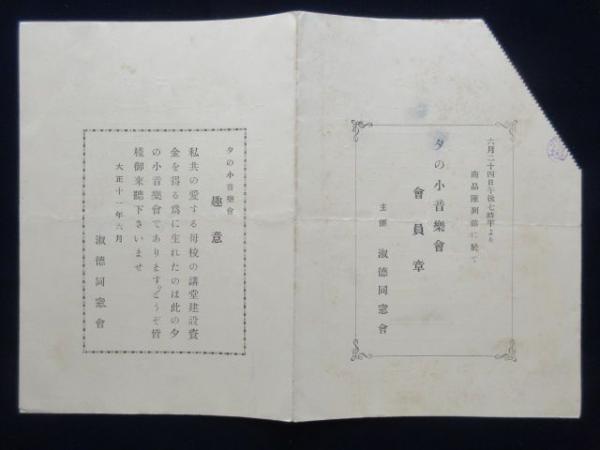 六月二十四日午後七時半より
商品陳列館に於て
夕の小音樂會
會員章
主催 淑德同窓會
夕の小音樂會
趣意
私共の愛する母校の講堂建設資
金を得る爲に生れたのは此の夕
の小音樂會であります。どうぞ皆
樣御来聽下さいませ
大正十一年六月
淑德同窓會